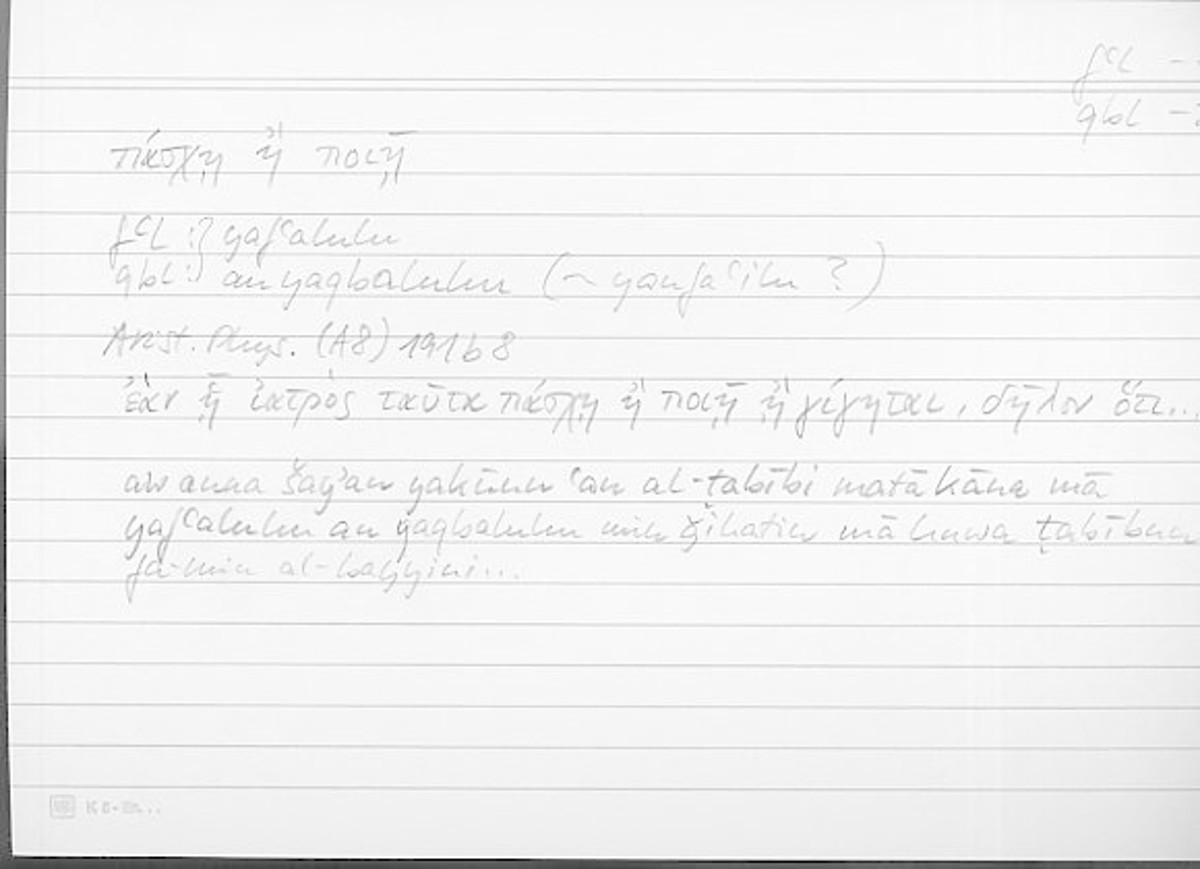 fʿl –
qbl –
πάσχῃ ἢ ποιῇ
fʿl :} yafʿaluhu
qbl :} au yaqbaluhu (~ yanfaʿilu ?)
Arist. Phys. (A8) 191b8
ἐὰν ᾖ ἰατρὸς ταῦτα πάσχῃ ἢ ποιῇ ἢ γίγηται, δῆλον ὅτι...
aw anna šayʾan yakūnu ʿan al-ṭabībi matā kāna mā
yafʿaluhu au yaqbaluhu min ǧihatin mā huwa ṭabībun
fa-min al-bayyini...